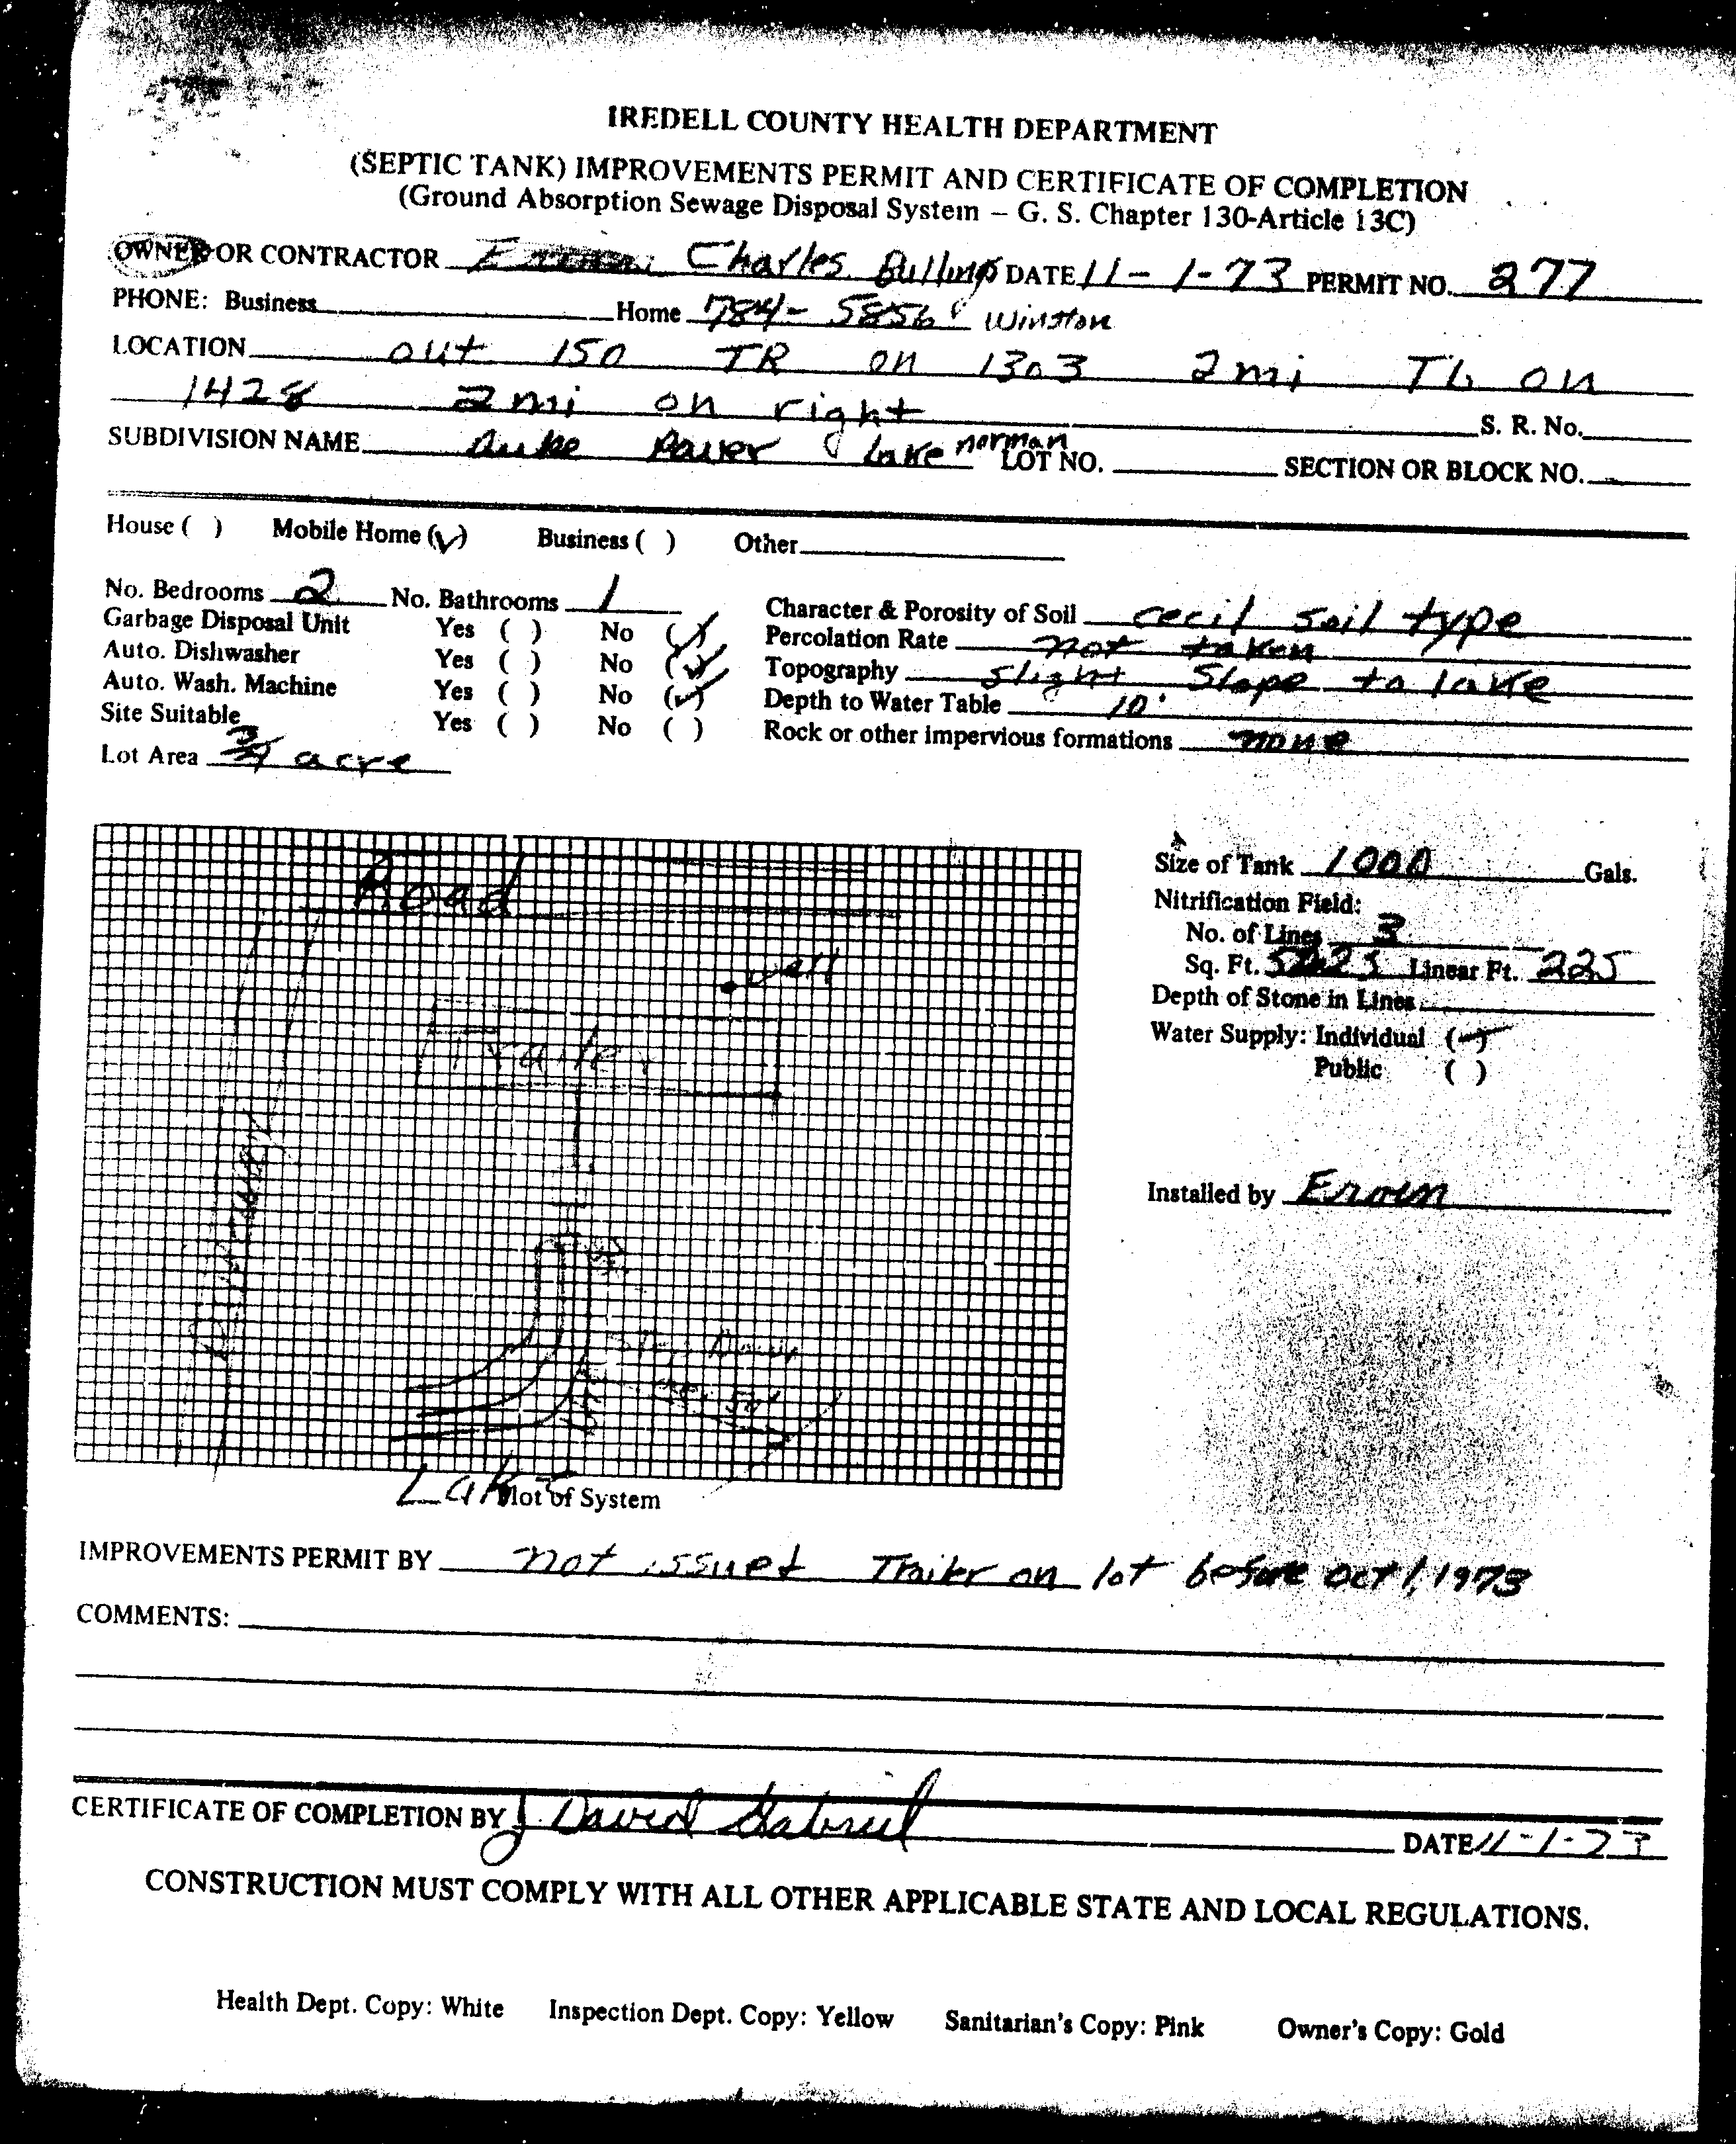 IREDELL COUNTY HEALTH DEPARTMENT
(SEPTIC TANK) IMPROVEMENTS PERMIT AND CERTIFICATE OF COMPLETION
(Ground Absorption Sewage Disposal System – G. S. Chapter 130-Article 13C)
OWNER OR CONTRACTOR Charles DATE 11-1-73 PERMIT NO. 277
PHONE: Business Home 784-5856 Winston
LOCATION out 150 TR on 1303 2 mi TL on
1428 2 mi on right S. R. No.
SUBDIVISION NAME Duke Power Lake norman LOT NO. SECTION OR BLOCK NO.
House ( ) Mobile Home (✓) Business ( ) Other
No. Bedrooms 2 No. Bathrooms 1 Character & Porosity of Soil cecil soil type
Garbage Disposal Unit Yes ( ) No (✓) Percolation Rate not taken
Auto. Dishwasher Yes ( ) No (✓) Topography slight slope to lake
Auto. Wash. Machine Yes ( ) No (✓) Depth to Water Table 10'
Site Suitable Yes ( ) No ( ) Rock or other impervious formations none
Lot Area 3/4 acre
Road
Size of Tank 1000 Gals.
Nitrification Field:
No. of Lines 3
well
Sq. Ft. Linear Ft. 225
Depth of Stone in Lines
Trailer
Water Supply: Individual (✓)
Public ( )
Driveway
Installed by
Lake
Plot of System
IMPROVEMENTS PERMIT BY not issued Trailer on lot before Oct 1, 1973
COMMENTS:
CERTIFICATE OF COMPLETION BY J. David Gabriel DATE 11-1-73
CONSTRUCTION MUST COMPLY WITH ALL OTHER APPLICABLE STATE AND LOCAL REGULATIONS.
Health Dept. Copy: White Inspection Dept. Copy: Yellow Sanitarian's Copy: Pink Owner's Copy: Gold